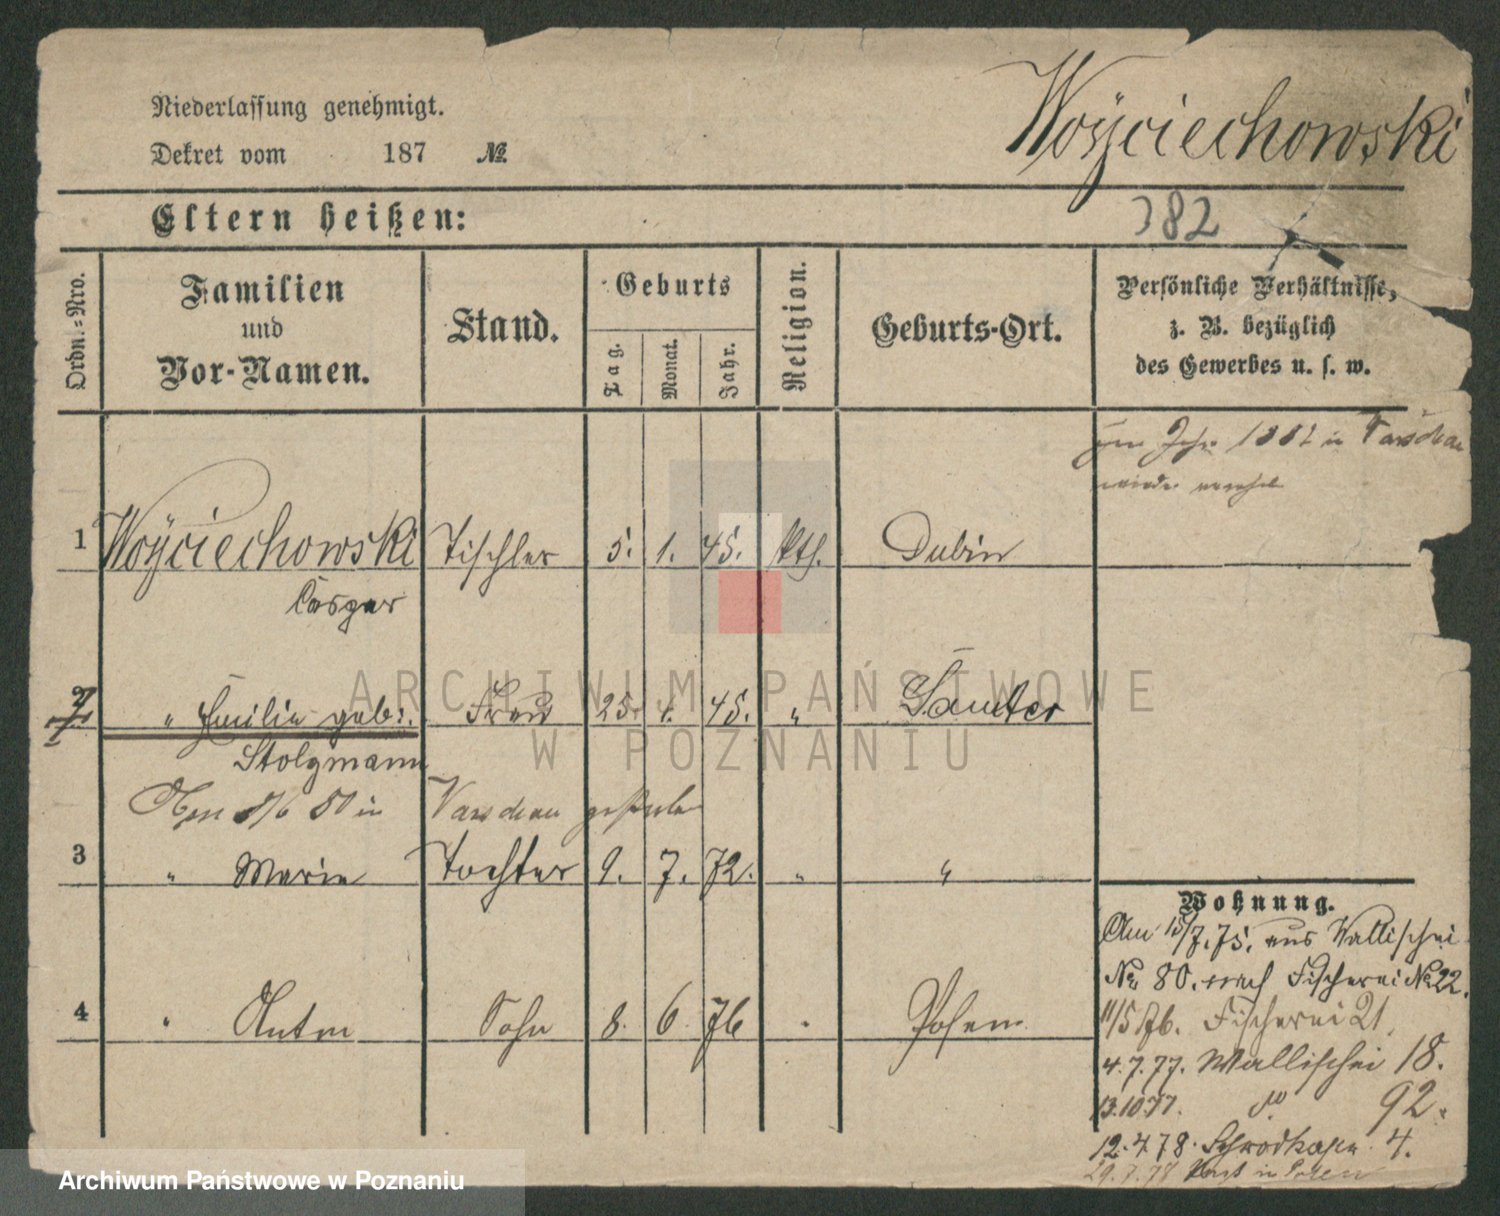 Niederlassung genehmigt.
Dekret vom 187 №
Woÿciechowski
Eltern heißen:
382
Ordn.=Nro.
Familien
und
Vor-Namen.
Stand.
Geburts
Tag.
Monat.
Jahr.
Religion.
Geburts-Ort.
Persönliche Verhältnisse,
z. B. bezüglich
des Gewerbes u. s. w.
im Jahr 1882 in Varschau
wieder
1 Woÿciechowski Tischler 5. 1. 45. kth. Dubin
Caspar
2 " Emilie geb: Frau 25. 1. 45. " Samter
Stolzmann
/6 80 in Varschau gestorben
3 " Marie Tochter 9. 7. 72. " "
4 " Anton Sohn 8. 6. 76 " Posen
Wohnung.
Am 15/7. 75. aus Wallischei
No 80. nach Fischerei No 22.
11/5 76. Fischerei 21
4.7.77. Wallischei 18.
13.10.77. 92.
12.4.78. Schrodkagen 4.
29.7.78 in Posen
ARCHIWUM PAŃSTWOWE
W POZNANIU
Archiwum Państwowe w Poznaniu